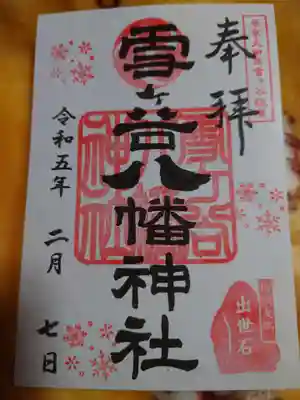 奉拝
雪ヶ谷八幡神社
令和五年 二月 七日
出世石